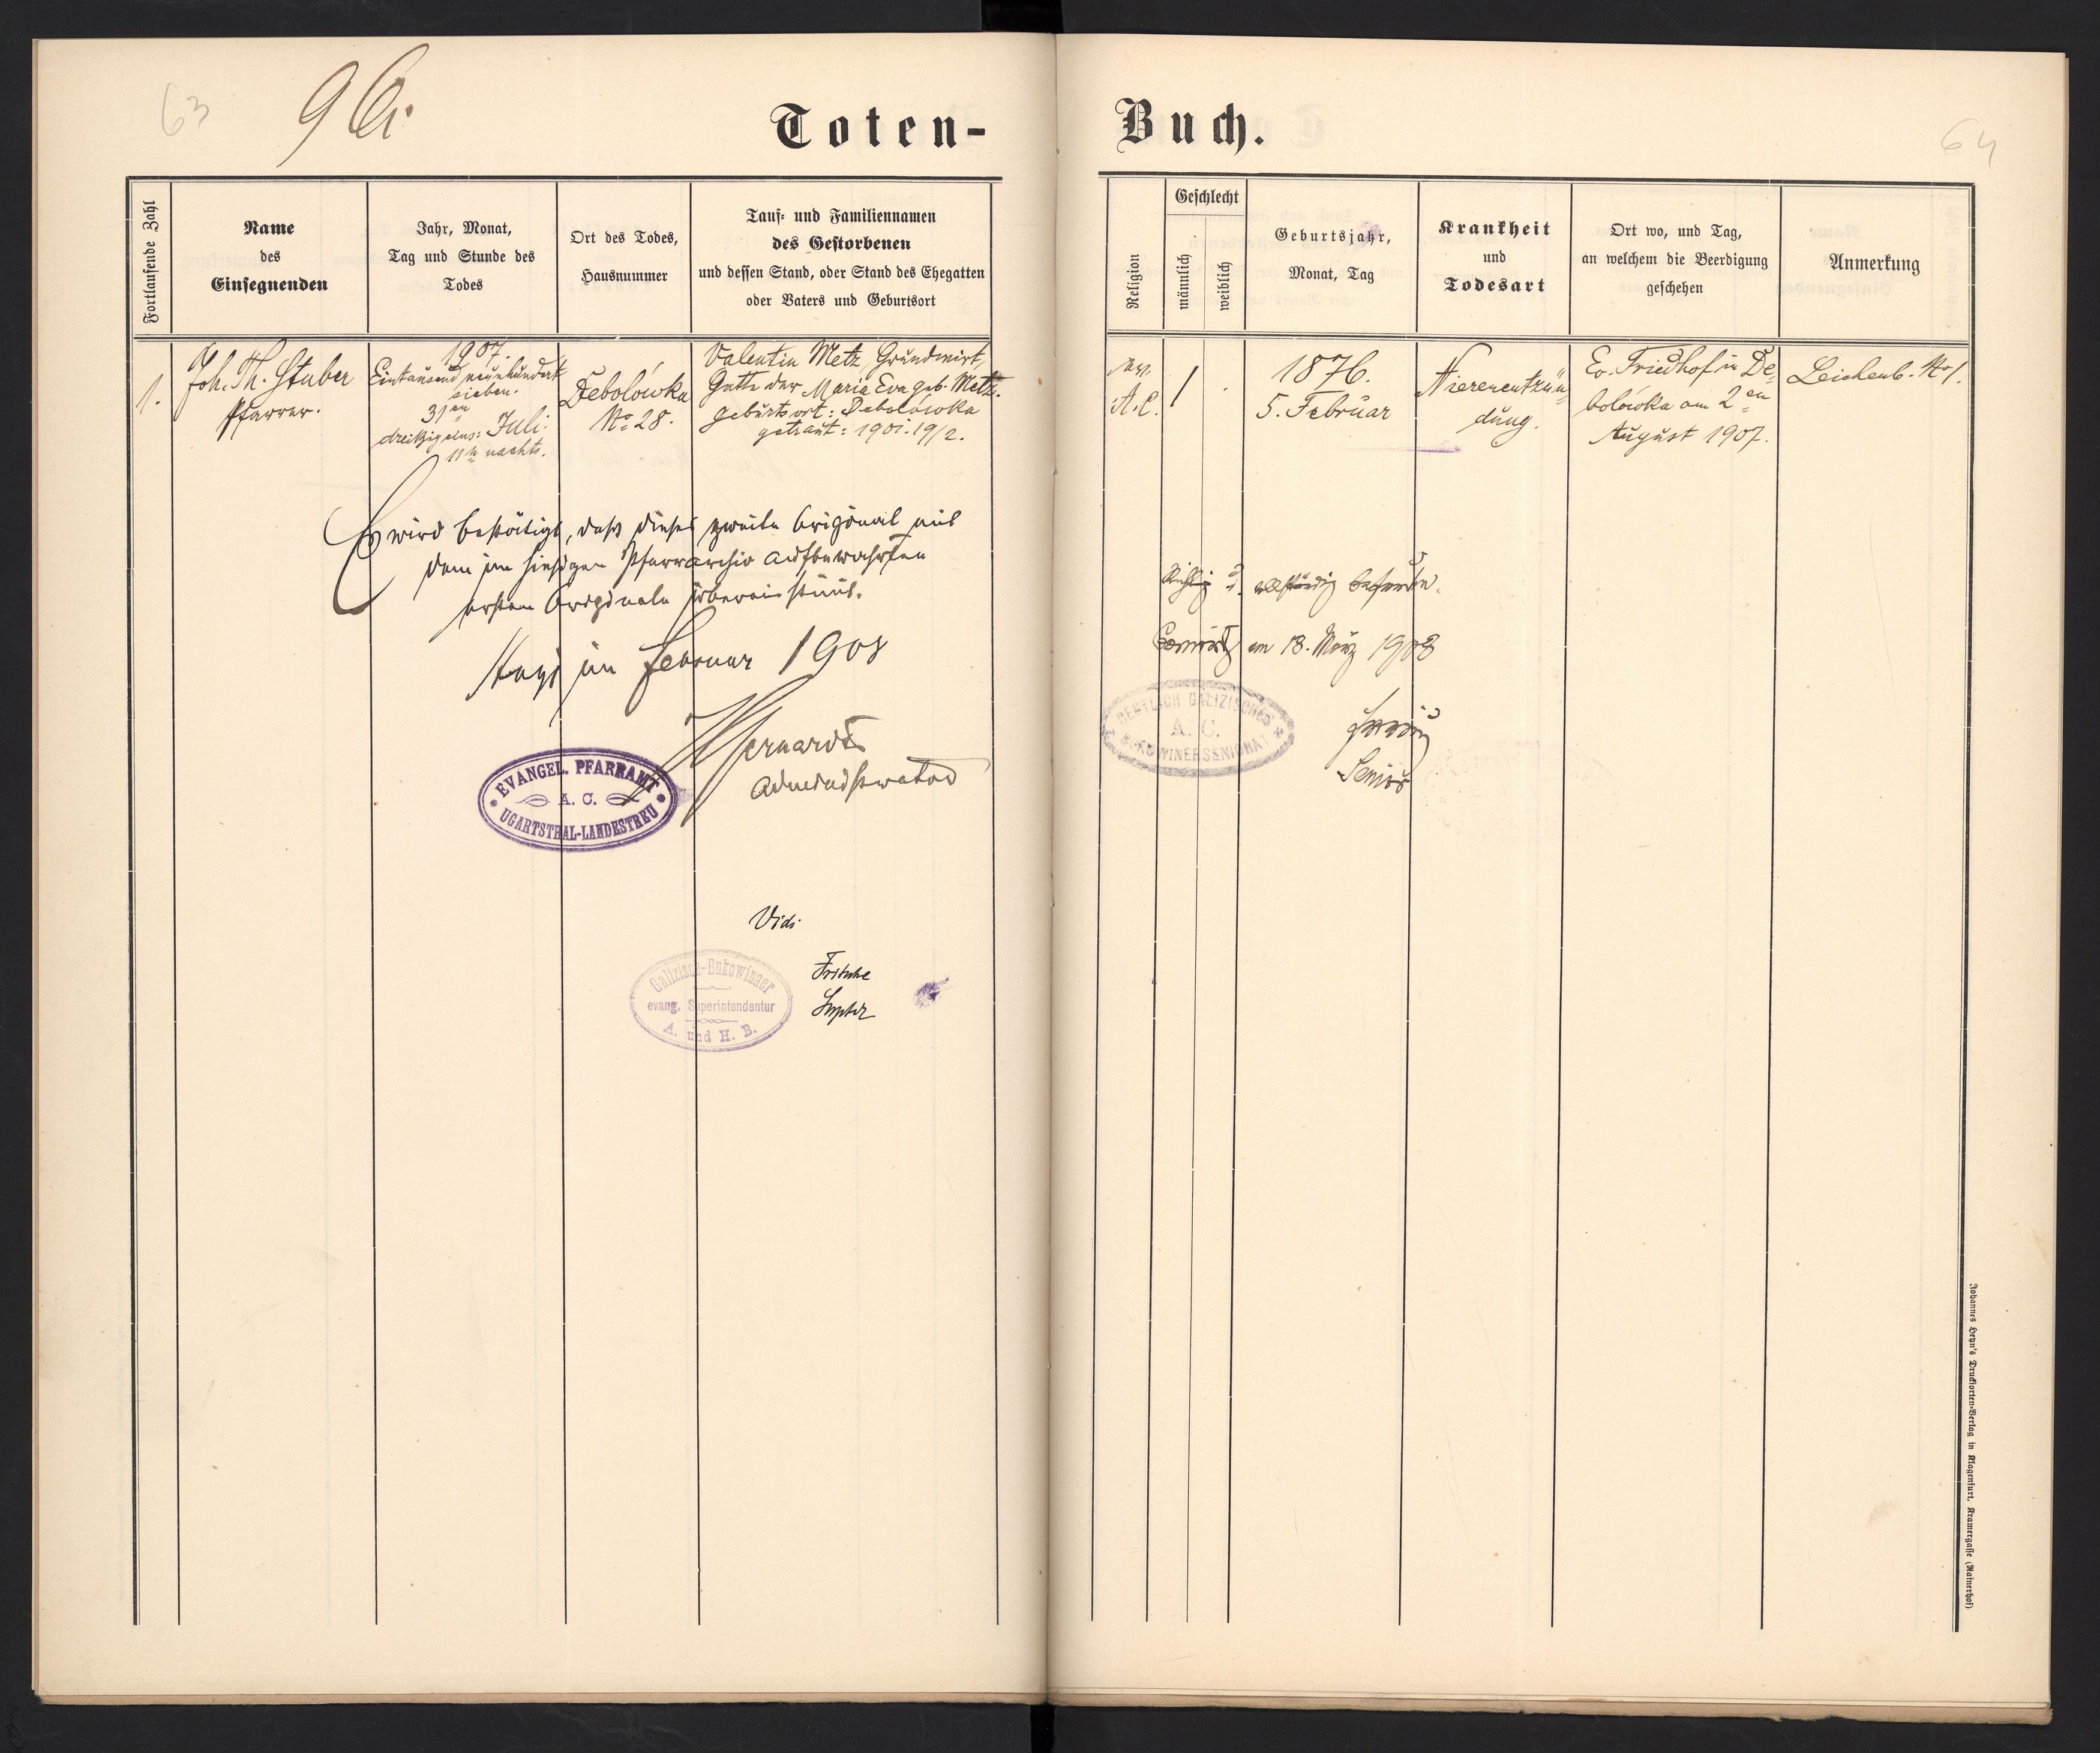 63
64
Toten-
Buch.
Fortlaufende Zahl
Name
des
Einsegnenden
Jahr, Monat,
Tag und Stunde des
Todes
Ort des Todes,
Hausnummer
Tauf- und Familiennamen
des Gestorbenen
und dessen Stand, oder Stand des Ehegatten
oder Vaters und Geburtsort
Religion
Geschlecht
männlich
weiblich
Geburtsjahr,
Monat, Tag
Krankheit
und
Todesart
Ort wo, und Tag,
an welchem die Beerdigung
geschehen
Anmerkung
1.
Joh. Th. Stuber
Pfarrer.
1907.
Eintausend neunhundert
sieben.
31en
dreißigeins: Juli.
11 h nachts.
Debolówka
No 28.
Valentin Metz, Grundwirt,
Gatte der Maria Eva geb. Metz.
Geburtsort: Debolówka
getraut: 1901. 19/2.
ev.
A.C.
1
1876.
5. Februar
Nierenentzün=
dung.
Ev. Friedhof in De=
bolówka am 2en
August 1907.
Leichenb. No 1.
Es wird bestätigt, daß dieses zweite Original mit
dem im hiesigen Pfarrarchiv aufbewahrten
ersten Originale übereinstimt.
Stryj im Februar 1908
Administrator
EVANGEL. PFARRAMT
A. C.
UGARTSTHAL-LANDESTREU
Vidi
Fritsche
Suptdt
Galizisch-Bukowinaer
evang. Superintendentur
A. und H. B.
Richtig u. vollständig befunden.
am 18. März 1908
Senior
OESTLICH GALIZISCHES
A. C.
BUKOWINERSENIORAT
Johannes Heyn's Drucksorten-Verlag in Klagenfurt, Kramergasse (Rainerhof)